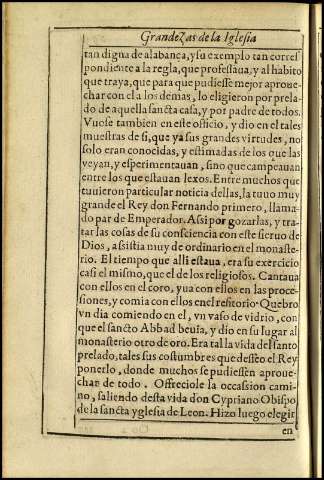 Grandezas de la Iglesia
tan digna de alabança, y su exemplo tan corres
pondiente a la regla, que professaua, y al habito
que traya, que para que pudiesse mejor aproue-
char con el a los demas, lo eligieron por prela-
do de aquella sancta casa, y por padre de todos.
Vuose tambien en este officio, y dio en el tales
muestras de si, que ya sus grandes virtudes, no
solo eran conocidas, y estimadas de los que las
veyan, y esperimentauan, sino que campeauan
entre los que estauan lexos. Entre muchos que
tuuieron particular noticia dellas, la tuuo muy
grande el Rey don Fernando primero, llama-
do par de Emperador. Assi por gozarlas, y tra-
tar las cosas de su consciencia con este sieruo de
Dios, assistia muy de ordinario en el monaste-
rio. El tiempo que alli estaua, era su exercicio
casi el mismo, que el de los religiosos. Cantaua
con ellos en el coro, yua con ellos en las proce-
siones, y comia con ellos en el refitorio. Quebro
vn dia comiendo en el, vn vaso de vidrio, con
que el sancto Abbad beuia, y dio en su lugar al
monasterio otro de oro. Era tal la vida del santo
prelado, tales sus costumbres que desseo el Rey
ponerlo, donde muchos se pudiessen aproue-
char de todo. Ofreciole la occassion cami-
no, saliendo desta vida don Cypriano Obispo
de la sancta yglesia de Leon. Hizo luego elegir
en